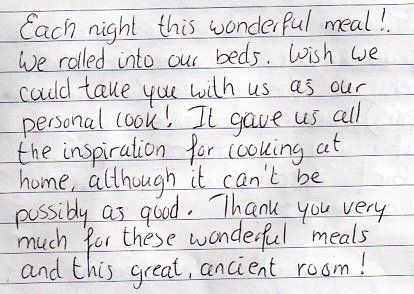 Each night this wonderful meal!.
We rolled into our beds. Wish we
could take you with us as our
personal cook! It gave us all
the inspiration for cooking at
home, although it can't be
possibly as good. Thank you very
much for these wonderful meals
and this great, ancient room!